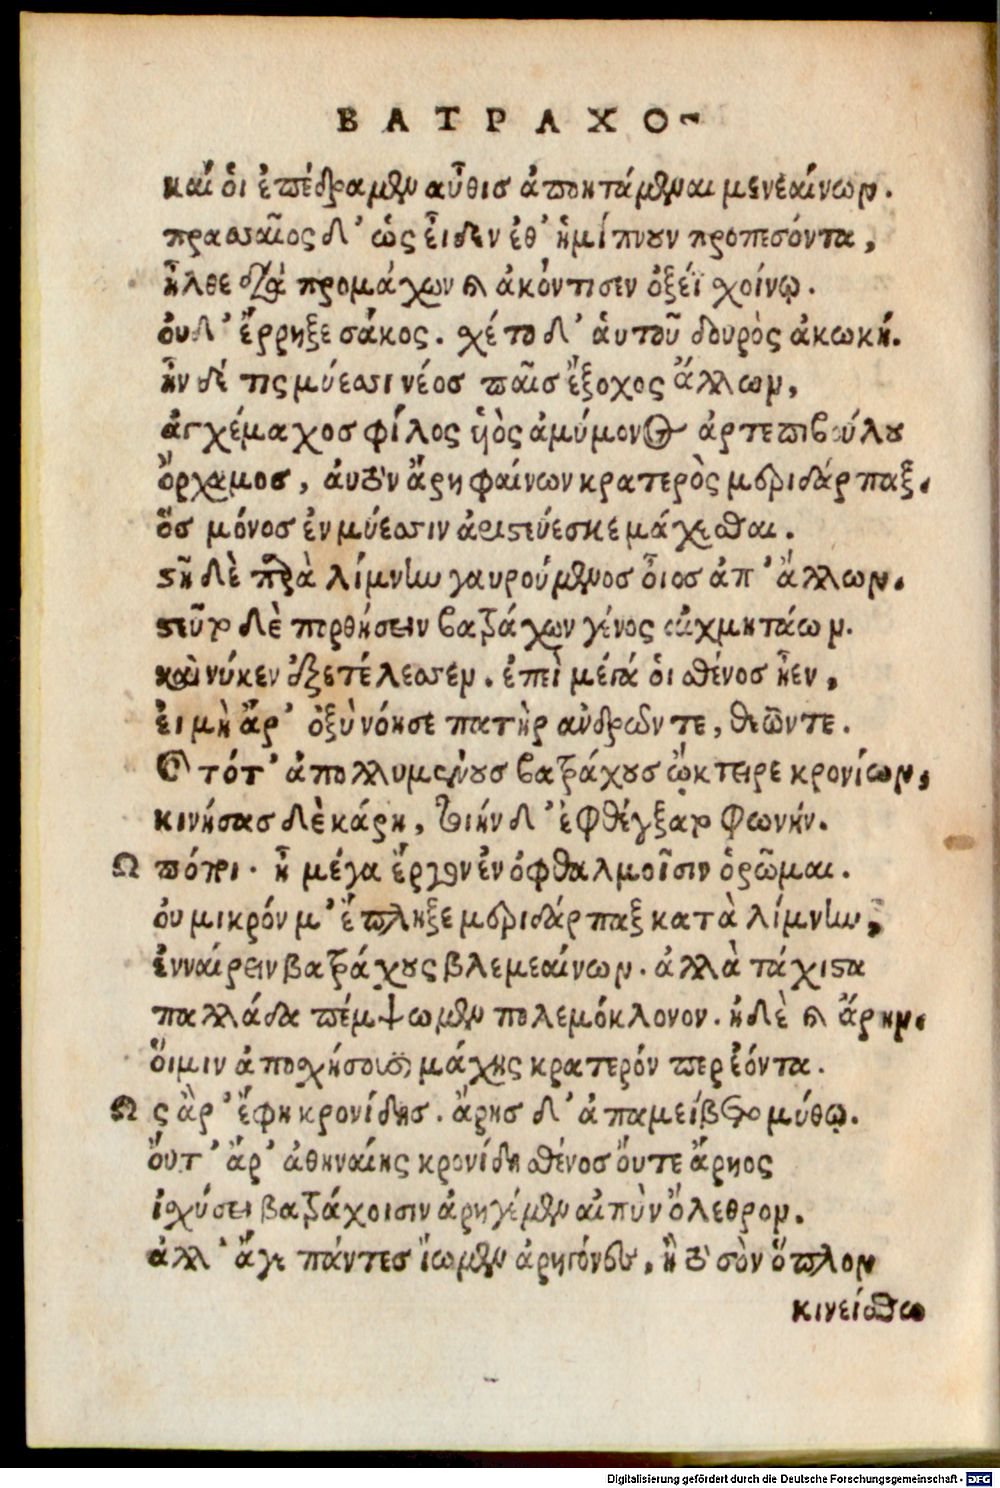 ΒΑΤΡΑΧΟ-
καί οἱ ἐπέδραμεν αὖθισ ἀποκτάμεναι μενεαίνων.
πρασσαῖος δ' ὡς εἶδεν ἔθ' ἡμίπνουν προπεσόντα,
ἦλθε διὰ προμάχων καὶ ἀκόντισεν ὀξέϊ χοίνῳ.
ὀυδ' ἔρρηξε σάκος. χέτο δ' ἀυτοῦ δουρὸς ἀκωκή.
ἦν δέ τις μύεσσι νέοσ παῖσ ἔξοχος ἄλλων,
ἀγχέμαχοσ φίλος ὑὸς ἀμύμονος ἀρτεπιβούλου
ὄρχαμοσ, ἀυτὸν ἄρη φαίνων κρατερὸς μεριδάρπαξ.
ὅσ μόνοσ ἐν μύεσσιν ἀριστεύεσκε μάχεσθαι.
στῆ δὲ παρὰ λίμνην γαυρούμενοσ οἶοσ ἀπ' ἄλλων.
στεῦτο δὲ περθήσειν βατράχων γένος αἰχμητάων.
καὶ νύκεν ἐξετέλεσσεν. ἐπεὶ μέγα ὁι σθένοσ ἦεν,
ἐι μὴ ἄρ' ὀξὺ νόησε πατὴρ ἀνδρῶν τε, θεῶν τε.
Καὶ τότ' ἀπολλυμένους βατράχους ᾤκτειρε κρονίων,
κινήσασ δὲ κάρη, τοιήν δ' ἐφθέγξατο φωνήν.
Ω πόποι. ἦ μέγα ἔργον ἐν ὀφθαλμοῖσιν ὁρῶμαι.
ὀυ μικρόν μ' ἔπληξε μεριδάρπαξ κατὰ λίμνην,
ἐνναίρειν βατράχους βλεμεαίνων. ἀλλὰ τάχιστα
παλλάδα πέμψωμεν πολεμόκλονον. ἠδὲ καὶ ἄρην.
ὅιμιν ἀποσχήσουσι μάχης κρατερόν περ ἐόντα.
Ως ἂρ' ἔφη κρονίδησ. ἄρησ δ' ἀπαμείβετο μύθῳ.
ὄυτ' ἄρ' ἀθηναίης κρονίδη σθένοσ ὄυτε ἄρηος
ἰσχύσει βατράχοισιν ἀρηγέμεν αἰπὺν ὄλεθρον.
ἀλλ' ἄγε πάντεσ ἴωμεν ἀρηγόνες, ἢ τὸ σὸν ὅπλον
κινείσθω
Digitalisierung gefördert durch die Deutsche Forschungsgemeinschaft - DFG